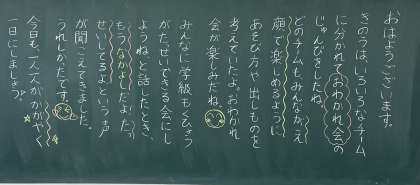 おはようございます。
きのうは、いろいろなチーム
に分かれておわかれ会の
じゅんびをしたね。
どのチームもみんながえ
顔で楽しめるように
あそび方や出しものを
考えていたよ。おわかれ
会が楽しみだね。
みんなに学級もくひょう
がたっせいできる会にし
ようねと話したとき、
もうなかよしだよ、たっ
せいしてるよという声
が聞こえてきました。
うれしかたです。
今日も一人一人がかがやく
一日にしましょう。